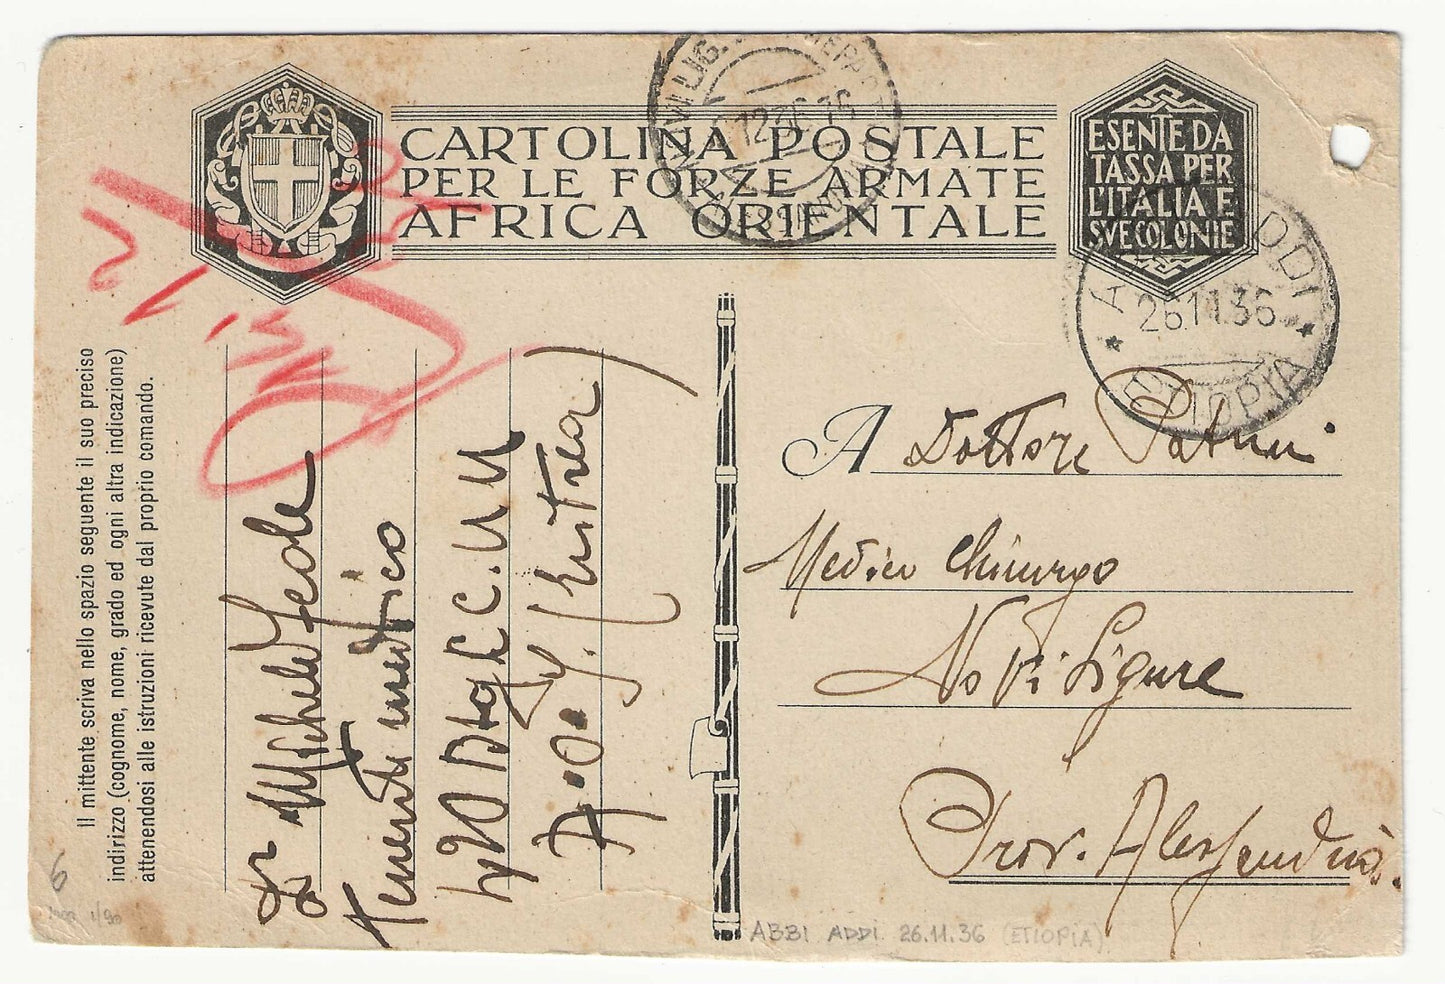 CARTOLINA POSTALE
PER LE FORZE ARMATE
AFRICA ORIENTALE
ESENTE DA
TASSA PER
L'ITALIA E
SVE COLONIE
26.11.36
ETIOPIA
A Dottore
Medico Chirurgo
Novi Ligure
Prov. Alessandria
Il mittente scriva nello spazio seguente il suo preciso
indirizzo (cognome, nome, grado ed ogni altra indicazione)
attenendosi alle istruzioni ricevute dal proprio comando.
Dr Michele
Tenente medico
Eritrea)
6
ABBI ADDI 26.11.36 (ETIOPIA)